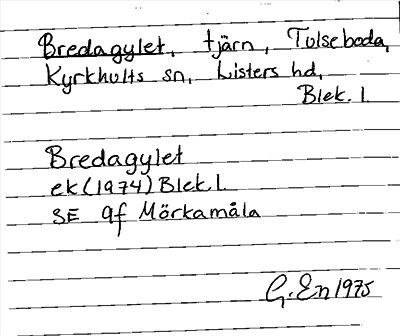 Bredagylet, tjärn, Tulseboda,
Kyrkhults sn, Listers hd,
Blek. l.
Bredagylet
ek (1974) Blek l.
SE 9f Mörkamåla
G. En 1975